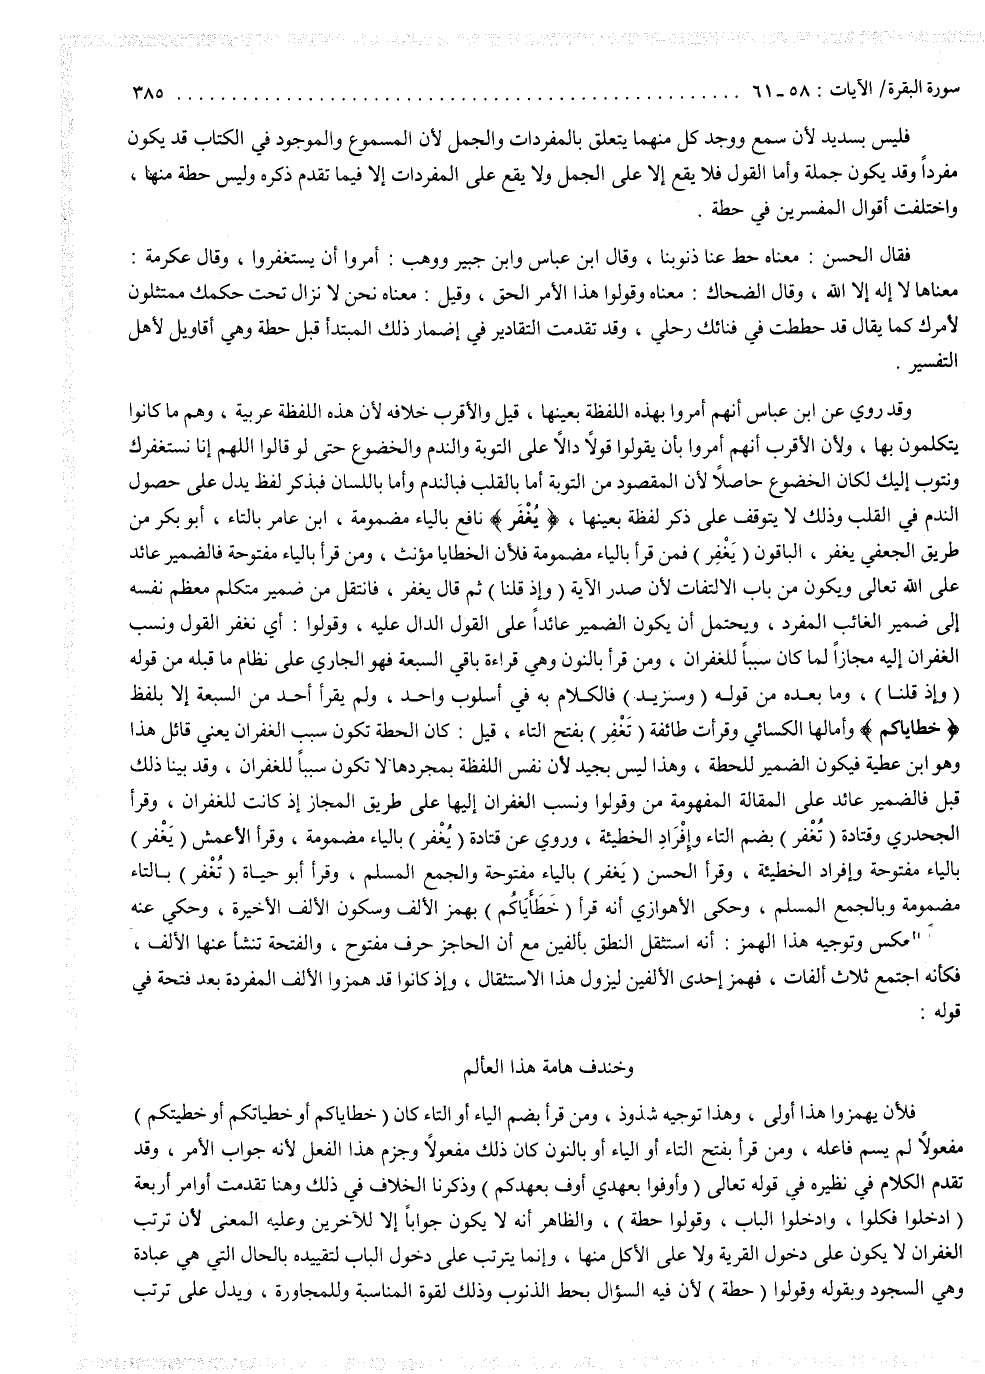 سورة البقرة/ الآيات : ٥٨ ـ ٦١ . . . . . . . . . . . . . . . . . . . . . . . . . . . . . . . . . . . . . . . . ٣٨٥
فليس بسديد لأن سمع ووجد كل منهما يتعلق بالمفردات والجمل لأن المسموع والموجود في الكتاب قد يكون
مفرداً وقد يكون جملة وأما القول فلا يقع إلا على الجمل ولا يقع على المفردات إلا فيما تقدم ذكره وليس حطة منها ،
واختلفت أقوال المفسرين في حطة .
فقال الحسن : معناه حط عنا ذنوبنا ، وقال ابن عباس وابن جبير ووهب : أمروا أن يستغفروا ، وقال عكرمة :
معناها لا إله إلا الله ، وقال الضحاك : معناه وقولوا هذا الأمر الحق ، وقيل : معناه نحن لا نزال تحت حكمك ممتثلون
لأمرك كما يقال قد حططت في فنائك رحلي ، وقد تقدمت التقادير في إضمار ذلك المبتدأ قبل حطة وهي أقاويل لأهل
التفسير .
وقد روي عن ابن عباس أنهم أمروا بهذه اللفظة بعينها ، قيل والأقرب خلافه لأن هذه اللفظة عربية ، وهم ما كانوا
يتكلمون بها ، ولأن الأقرب أنهم أمروا بأن يقولوا قولاً دالاً على التوبة والندم والخضوع حتى لو قالوا اللهم إنا نستغفرك
ونتوب إليك لكان الخضوع حاصلاً لأن المقصود من التوبة أما بالقلب فبالندم وأما باللسان فبذكر لفظ يدل على حصول
الندم في القلب وذلك لا يتوقف على ذكر لفظة بعينها ، ﴿ يُغْفَر ﴾ نافع بالياء مضمومة ، ابن عامر بالتاء ، أبو بكر من
طريق الجعفي يغفر ، الباقون ( يَغْفِر ) فمن قرأ بالياء مضمومة فلأن الخطايا مؤنث ، ومن قرأ بالياء مفتوحة فالضمير عائد
على الله تعالى ويكون من باب الالتفات لأن صدر الآية ( وإذ قلنا ) ثم قال يغفر ، فانتقل من ضمير متكلم معظم نفسه
إلى ضمير الغائب المفرد ، ويحتمل أن يكون الضمير عائداً على القول الدال عليه ، وقولوا : أي نغفر القول ونسب
الغفران إليه مجازاً لما كان سبباً للغفران ، ومن قرأ بالنون وهي قراءة باقي السبعة فهو الجاري على نظام ما قبله من قوله
( وإذ قلنـا ) ، وما بعـده من قولـه ( وسنزيـد ) فالكـلام به في أسلوب واحـد ، ولم يقرأ أحـد من السبعة إلا بلفظ
﴿ خطاياكم ﴾ وأمالها الكسائي وقرأت طائفة ( تَغْفِر ) بفتح التاء ، قيل : كان الحطة تكون سبب الغفران يعني قائل هذا
وهو ابن عطية فيكون الضمير للحطة ، وهذا ليس بجيد لأن نفس اللفظة بمجردها لا تكون سبباً للغفران ، وقد بينا ذلك
قبل فالضمير عائد على المقالة المفهومة من وقولوا ونسب الغفران إليها على طريق المجاز إذ كانت للغفران ، وقرأ
الجحدري وقتادة ( تُغْفر ) بضم التاء وإفْرَادِ الخطيئة ، وروي عن قتادة ( يُغْفر ) بالياء مضمومة ، وقرأ الأعمش ( يَغْفر )
بالياء مفتوحة وإفراد الخطيئة ، وقرأ الحسن ( يَغفر ) بالياء مفتوحة والجمع المسلم ، وقرأ أبو حيـاة ( تُغْفر ) بـالتاء
مضمومة وبالجمع المسلم ، وحكى الأهوازي أنه قرأ ( خَطَأْيَاكُم ) بهمز الألف وسكون الألف الأخيرة ، وحكي عنه
العكس وتوجيه هذا الهمز : أنه استثقل النطق بألفين مع أن الحاجز حرف مفتوح ، والفتحة تنشأ عنها الألف ،
فكأنه اجتمع ثلاث ألفات ، فهمز إحدى الألفين ليزول هذا الاستثقال ، وإذ كانوا قد همزوا الألف المفردة بعد فتحة في
قوله :
وخندف هامة هذا العألم
فلأن يهمزوا هذا أولى ، وهذا توجيه شذوذ ، ومن قرأ بضم الياء أو التاء كان ( خطاياكم أو خطياتكم أو خطيتكم )
مفعولاً لم يسم فاعله ، ومن قرأ بفتح التاء أو الياء أو بالنون كان ذلك مفعولاً وجزم هذا الفعل لأنه جواب الأمر ، وقد
تقدم الكلام في نظيره في قوله تعالى ( وأوفوا بعهدي أوف بعهدكم ) وذكرنا الخلاف في ذلك وهنا تقدمت أوامر أربعة
( ادخلوا فكلوا ، وادخلوا الباب ، وقولوا حطة ) ، والظاهر أنه لا يكون جواباً إلا للآخرين وعليه المعنى لأن ترتب
الغفران لا يكون على دخول القرية ولا على الأكل منها ، وإنما يترتب على دخول الباب لتقييده بالحال التي هي عبادة
وهي السجود وبقوله وقولوا ( حطة ) لأن فيه السؤال بحط الذنوب وذلك لقوة المناسبة وللمجاورة ، ويدل على ترتب